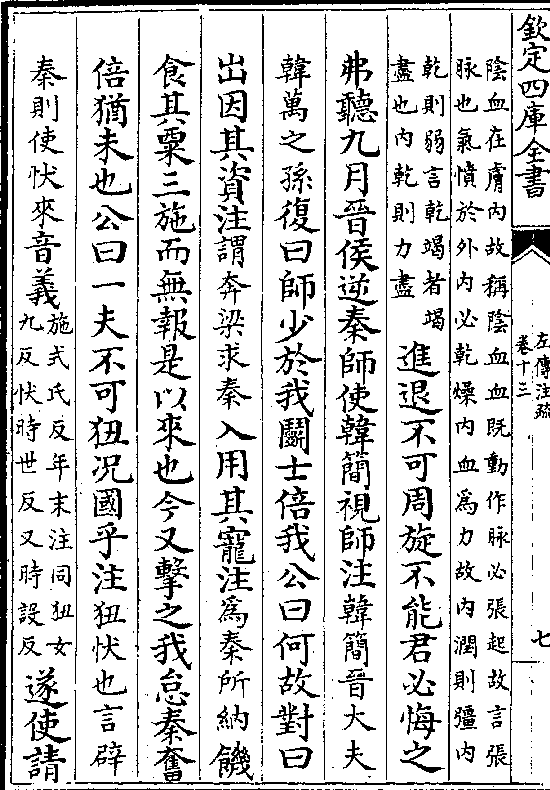 欽定四庫全書
左傳注疏
卷十三
七
陰血在膚內故稱陰血血既動作脉必張起故言張
脉也氣憤於外內必乾燥內血為力故內潤則彊內
乾則弱言乾竭者竭
盡也內乾則力盡
進退不可周旋不能君必悔之
弗聽九月晉侯逆秦師使韓簡視師注韓簡晉大夫
韓萬之孫復曰師少於我鬭士倍我公曰何故對曰
出因其資注謂奔梁求秦入用其寵注為秦所納饑
食其粟三施而無報是以來也今又擊之我怠秦奮
倍猶未也公曰一夫不可狃况國乎注狃忕也言辟
秦則使忕來音義
施式氏反年末注同狃女
九反忕時世反又時設反
遂使請